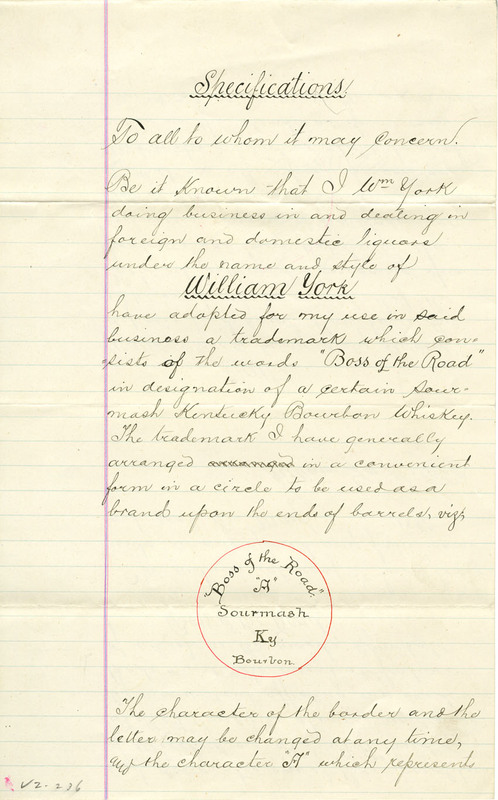 Specifications
To all to whom it may concern.
Be it Known that I Wm York
doing business in and dealing in
foreign and domestic liquors
under the name and style of
William York
have adopted for my use in said
business a trademark which con-
sists of the words "Boss of the Road"
in designation of a certain sour-
mash Kentucky Bourbon Whiskey.
The trademark I have generally
arranged arranged in a convenient
form in a circle to be used as a
brand upon the ends of barrels, viz,
"Boss of the Road."
"A"
Sourmash
Ky
Bourbon
The character of the border and the
letter may be changed at any time,
the character "A" which represents
V2-286